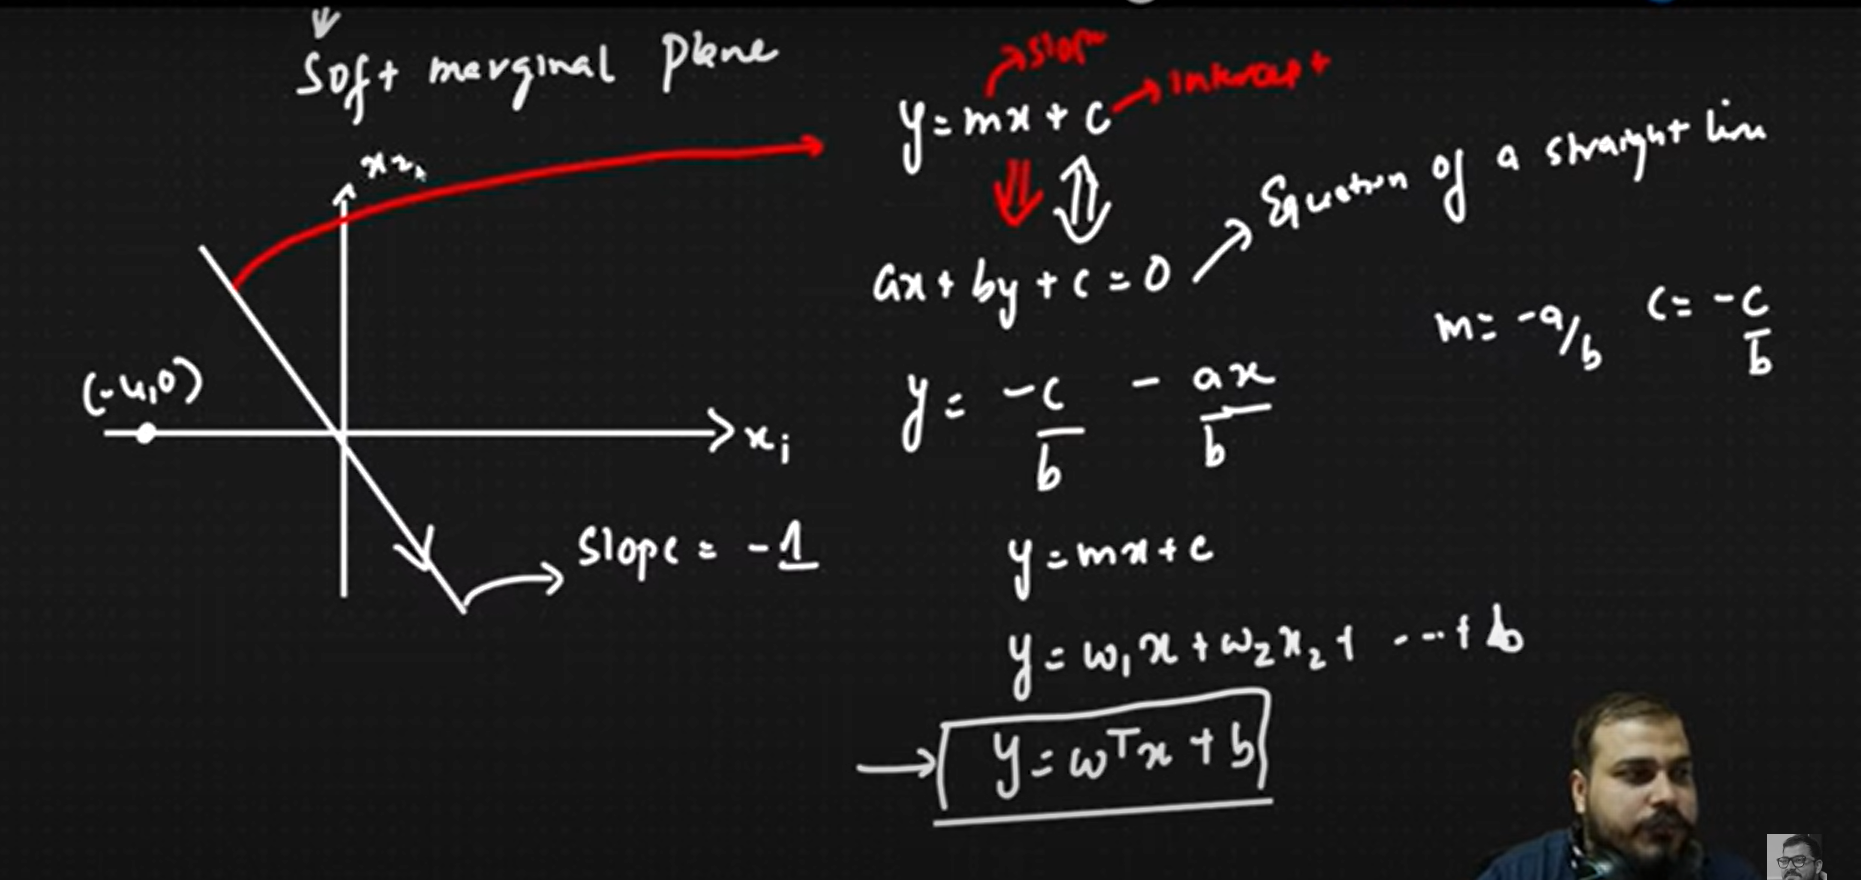 Soft merginal Plane
x2
(-4,0)
xi
Slope = -1
Slope
Intercept
y = mx + c
ax + by + c = 0
Equation of a straight line
m = -a/b c = -c/b
y = -c/b - ax/b
y = mx + c
y = w1x + w2x2 + --- + b
y = wTx + b